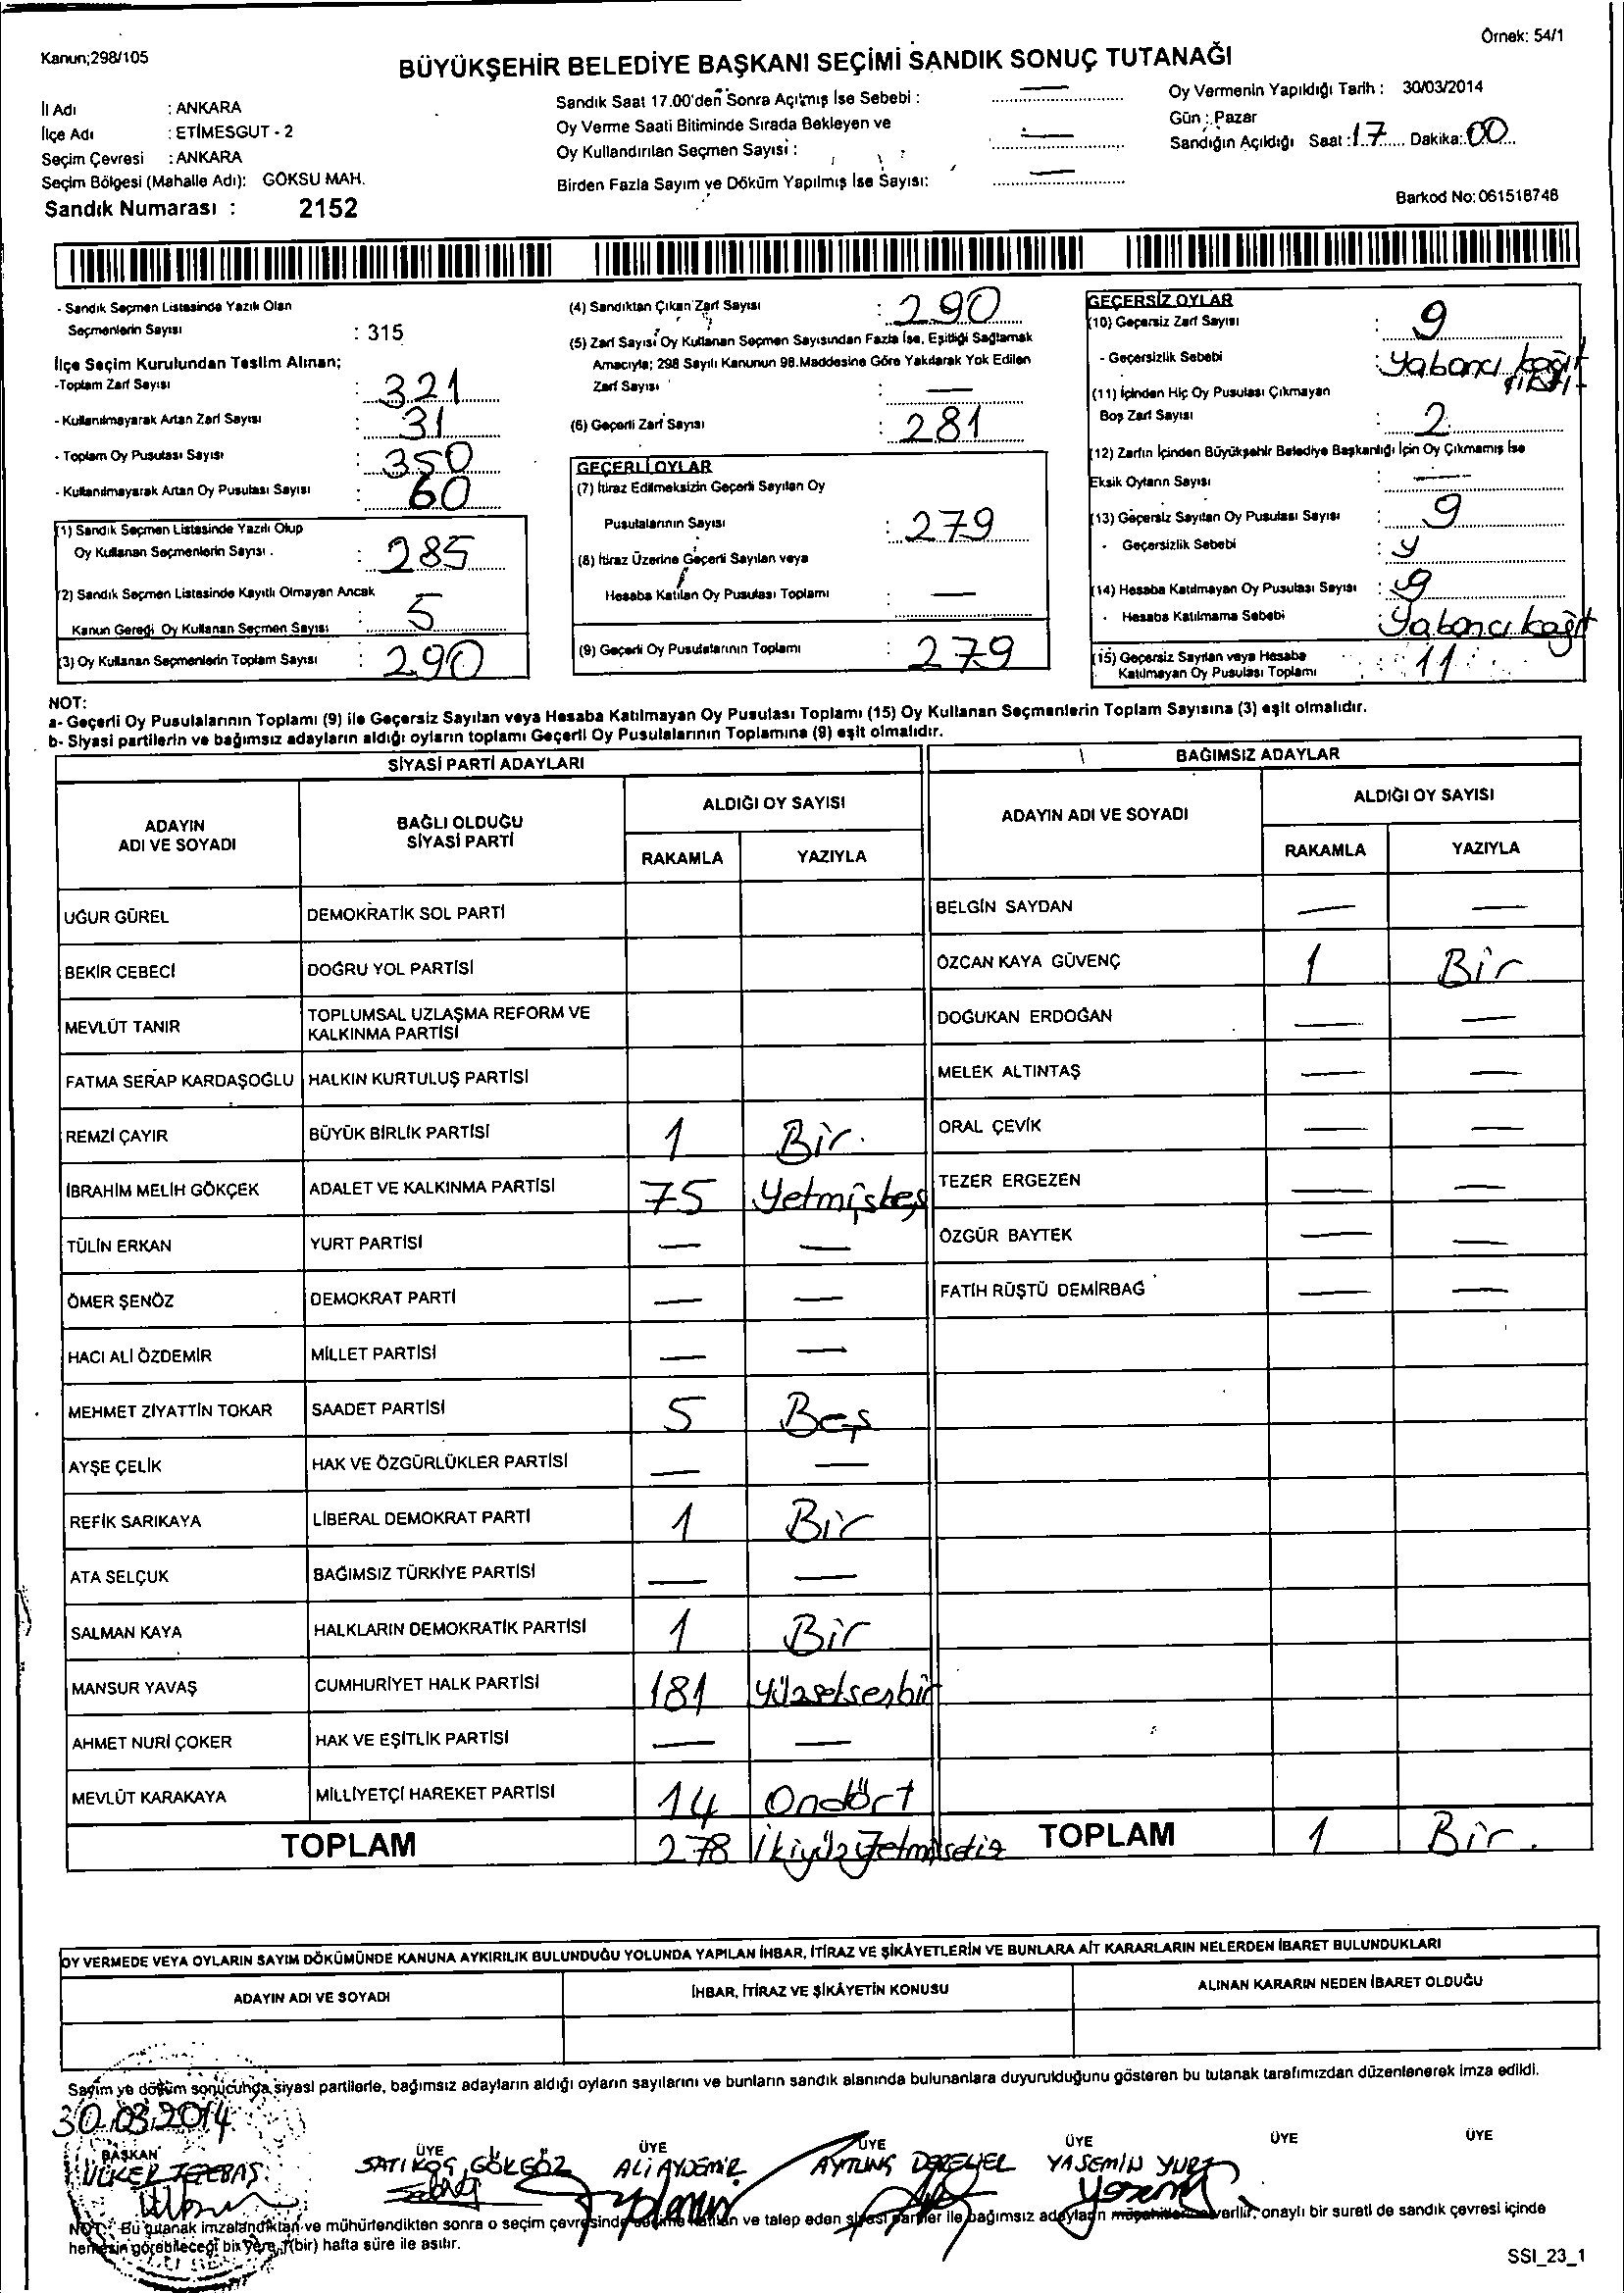 Örnek: 54/1
Kanun;298/105
BÜYÜKŞEHİR BELEDİYE BAŞKANI SEÇİMİ SANDIK SONUÇ TUTANAĞI
İl Adı : ANKARA
İlçe Adı : ETİMESGUT - 2
Seçim Çevresi : ANKARA
Seçim Bölgesi (Mahalle Adı): GÖKSU MAH.
Sandık Numarası : 2152
Sandık Saat 17.00'den Sonra Açılmış İse Sebebi : —
Oy Verme Saati Bitiminde Sırada Bekleyen ve
Oy Kullandırılan Seçmen Sayısı : —
Birden Fazla Sayım ve Döküm Yapılmış İse Sayısı: —
Oy Vermenin Yapıldığı Tarih : 30/03/2014
Gün : Pazar
Sandığın Açıldığı Saat : 17 Dakika: 00
Barkod No: 061518748
- Sandık Seçmen Listesinde Yazılı Olan
Seçmenlerin Sayısı : 315
İlçe Seçim Kurulundan Teslim Alınan;
-Toplam Zarf Sayısı : 321
- Kullanılmayarak Artan Zarf Sayısı : 31
- Toplam Oy Pusulası Sayısı : 350
- Kullanılmayarak Artan Oy Pusulası Sayısı : 60
(1) Sandık Seçmen Listesinde Yazılı Olup
Oy Kullanan Seçmenlerin Sayısı : 285
(2) Sandık Seçmen Listesinde Kayıtlı Olmayan Ancak
Kanun Gereği Oy Kullanan Seçmen Sayısı : 5
(3) Oy Kullanan Seçmenlerin Toplam Sayısı : 290
(4) Sandıktan Çıkan Zarf Sayısı : 290
(5) Zarf Sayısı Oy Kullanan Seçmen Sayısından Fazla İse, Eşitliği Sağlamak
Amacıyla; 298 Sayılı Kanunun 98.Maddesine Göre Yakılarak Yok Edilen
Zarf Sayısı : —
(6) Geçerli Zarf Sayısı : 281
GEÇERLİ OYLAR
(7) İtiraz Edilmeksizin Geçerli Sayılan Oy
Pusulalarının Sayısı : 279
(8) İtiraz Üzerine Geçerli Sayılan veya
Hesaba Katılan Oy Pusulası Toplamı : —
(9) Geçerli Oy Pusulalarının Toplamı : 279
GEÇERSİZ OYLAR
(10) Geçersiz Zarf Sayısı : 9
- Geçersizlik Sebebi : Yabancı kağıt
(11) İçinden Hiç Oy Pusulası Çıkmayan
Boş Zarf Sayısı : 2
(12) Zarfın İçinden Büyükşehir Belediye Başkanlığı İçin Oy Çıkmamış İse
Eksik Oyların Sayısı : —
(13) Geçersiz Sayılan Oy Pusulası Sayısı : 9
- Geçersizlik Sebebi : y
(14) Hesaba Katılmayan Oy Pusulası Sayısı : 9
- Hesaba Katılmama Sebebi Yabancı kağıt
(15) Geçersiz Sayılan veya Hesaba
Katılmayan Oy Pusulası Toplamı : 11
NOT:
a- Geçerli Oy Pusulalarının Toplamı (9) ile Geçersiz Sayılan veya Hesaba Katılmayan Oy Pusulası Toplamı (15) Oy Kullanan Seçmenlerin Toplam Sayısına (3) eşit olmalıdır.
b- Siyasi partilerin ve bağımsız adayların aldığı oyların toplamı Geçerli Oy Pusulalarının Toplamına (9) eşit olmalıdır.
SİYASİ PARTİ ADAYLARI
ADAYIN ADI VE SOYADI BAĞLI OLDUĞU SİYASİ PARTİ ALDIĞI OY SAYISI
RAKAMLA YAZIYLA
UĞUR GÜREL DEMOKRATİK SOL PARTİ
BEKİR CEBECİ DOĞRU YOL PARTİSİ
MEVLÜT TANIR TOPLUMSAL UZLAŞMA REFORM VE KALKINMA PARTİSİ
FATMA SERAP KARDAŞOĞLU HALKIN KURTULUŞ PARTİSİ
REMZİ ÇAYIR BÜYÜK BİRLİK PARTİSİ 1 Bir
İBRAHİM MELİH GÖKÇEK ADALET VE KALKINMA PARTİSİ 75 Yetmişbeş
TÜLİN ERKAN YURT PARTİSİ — —
ÖMER ŞENÖZ DEMOKRAT PARTİ — —
HACI ALİ ÖZDEMİR MİLLET PARTİSİ — —
MEHMET ZİYATTİN TOKAR SAADET PARTİSİ 5 Beş
AYŞE ÇELİK HAK VE ÖZGÜRLÜKLER PARTİSİ — —
REFİK SARIKAYA LİBERAL DEMOKRAT PARTİ 1 Bir
ATA SELÇUK BAĞIMSIZ TÜRKİYE PARTİSİ — —
SALMAN KAYA HALKLARIN DEMOKRATİK PARTİSİ 1 Bir
MANSUR YAVAŞ CUMHURİYET HALK PARTİSİ 181 Yüzseksenbir
AHMET NURİ ÇOKER HAK VE EŞİTLİK PARTİSİ — —
MEVLÜT KARAKAYA MİLLİYETÇİ HAREKET PARTİSİ 14 Ondört
TOPLAM 278 İkiyüzyetmişsekiz
BAĞIMSIZ ADAYLAR
ADAYIN ADI VE SOYADI ALDIĞI OY SAYISI
RAKAMLA YAZIYLA
BELGİN SAYDAN — —
ÖZCAN KAYA GÜVENÇ 1 Bir
DOĞUKAN ERDOĞAN — —
MELEK ALTINTAŞ — —
ORAL ÇEVİK — —
TEZER ERGEZEN — —
ÖZGÜR BAYTEK — —
FATİH RÜŞTÜ DEMİRBAĞ — —
TOPLAM 1 Bir.
OY VERMEDE VEYA OYLARIN SAYIM DÖKÜMÜNDE KANUNA AYKIRILIK BULUNDUĞU YOLUNDA YAPILAN İHBAR, İTİRAZ VE ŞİKÂYETLERİN VE BUNLARA AİT KARARLARIN NELERDEN İBARET BULUNDUKLARI
ADAYIN ADI VE SOYADI İHBAR, İTİRAZ VE ŞİKÂYETİN KONUSU ALINAN KARARIN NEDEN İBARET OLDUĞU
Sayım ve döküm sonucunda siyasi partilerle, bağımsız adayların aldığı oyların sayılarını ve bunların sandık alanında bulunanlara duyurulduğunu gösteren bu tutanak tarafımızdan düzenlenerek imza edildi.
30.03.2014
BAŞKAN ÜYE ÜYE ÜYE ÜYE ÜYE ÜYE
ÜLKER TEPEBAŞ SATI KOÇ GÖKGÖZ ALİ AYDEMİR AYTUNÇ YASEMİN YURT
NOT: Bu tutanak imzalandıktan ve mühürlendikten sonra o seçim çevresinde seçime katılan ve talep eden siyasi partiler ile bağımsız adayların müşahitlerine verilir, onaylı bir sureti de sandık çevresi içinde
herkesin görebileceği bir yere, 1(bir) hafta süre ile asılır.
SSI_23_1